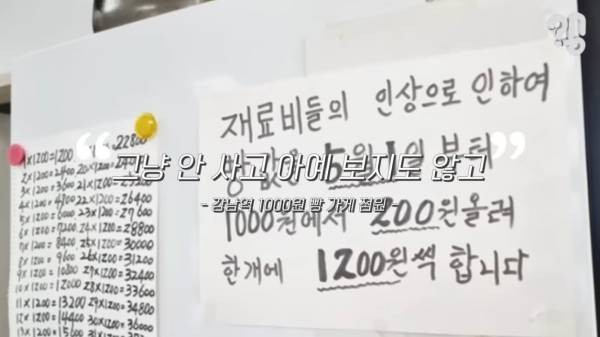 재료비들의 인상으로 인하여
빵값은 5월1일 부터
1000원에서 200원올려
한개에 1200원씩 합니다
“그냥 안 사고 아예 보지도 않고”
- 강남역 1000원 빵 가게 점원 -
1×1200=1200
22800
2×1200=2400
3×1200=3600
4×1200=4800 22×1200=26400
5×1200=6000 23×1200=27600
6×1200=7200 24×1200=28800
7×1200=8400 25×1200=30000
8×1200=9600 26×1200=31200
9×1200=10800 27×1200=32400
10×1200=12000 28×1200=33600
11×1200=13200 29×1200=34800
12×1200=14400 30×1200=36000
13×1200=15600